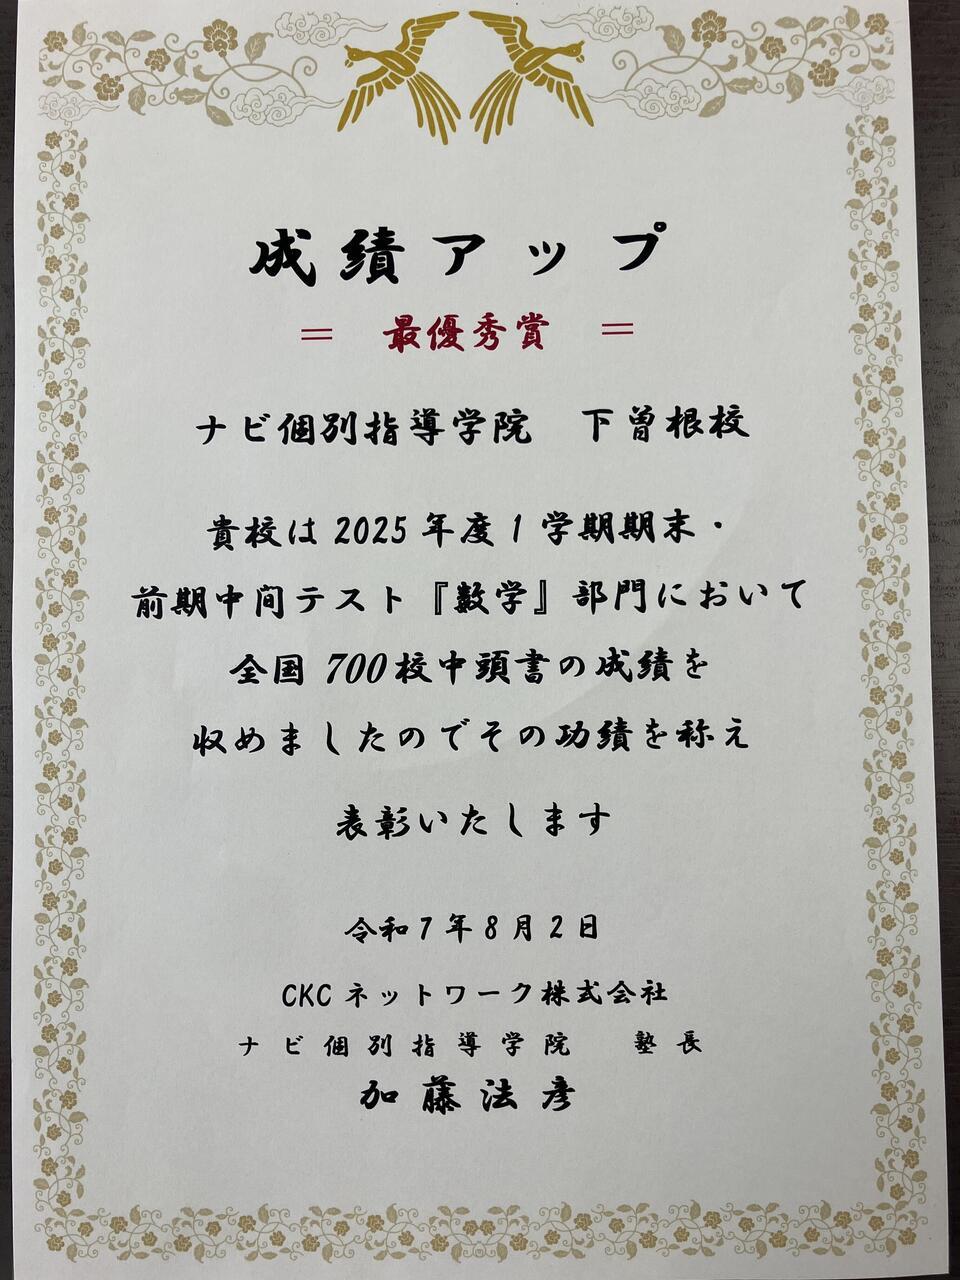 成績アップ
＝　最優秀賞　＝
ナビ個別指導学院　下曽根校
貴校は2025年度1学期期末・
前期中間テスト『数学』部門において
全国700校中頭書の成績を
収めましたのでその功績を称え
表彰いたします
令和7年8月2日
CKCネットワーク株式会社
ナビ個別指導学院　塾長
加藤法彦